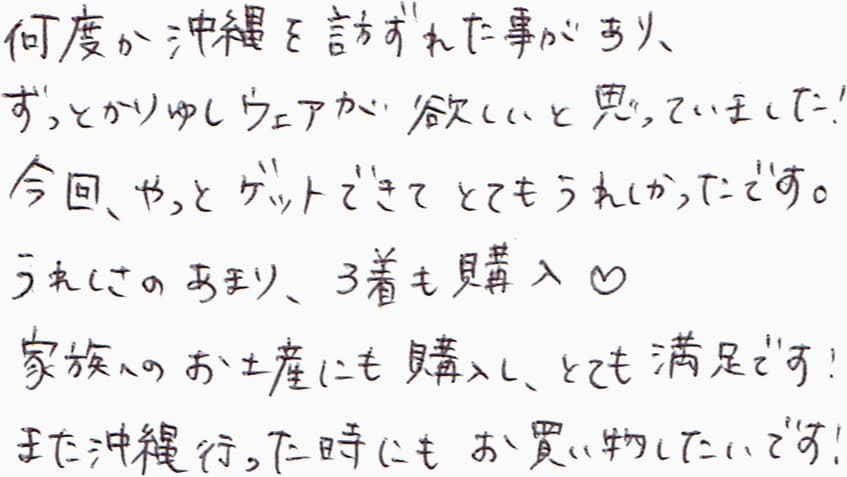 何度か沖縄を訪ずれた事があり、
ずっとかりゆしウェアが欲しいと思っていました!
今回、やっとゲットできてとてもうれしかったです。
うれしさのあまり、3着も購入♡
家族へのお土産にも購入し、とても満足です!
また沖縄行った時にもお買い物したいです!